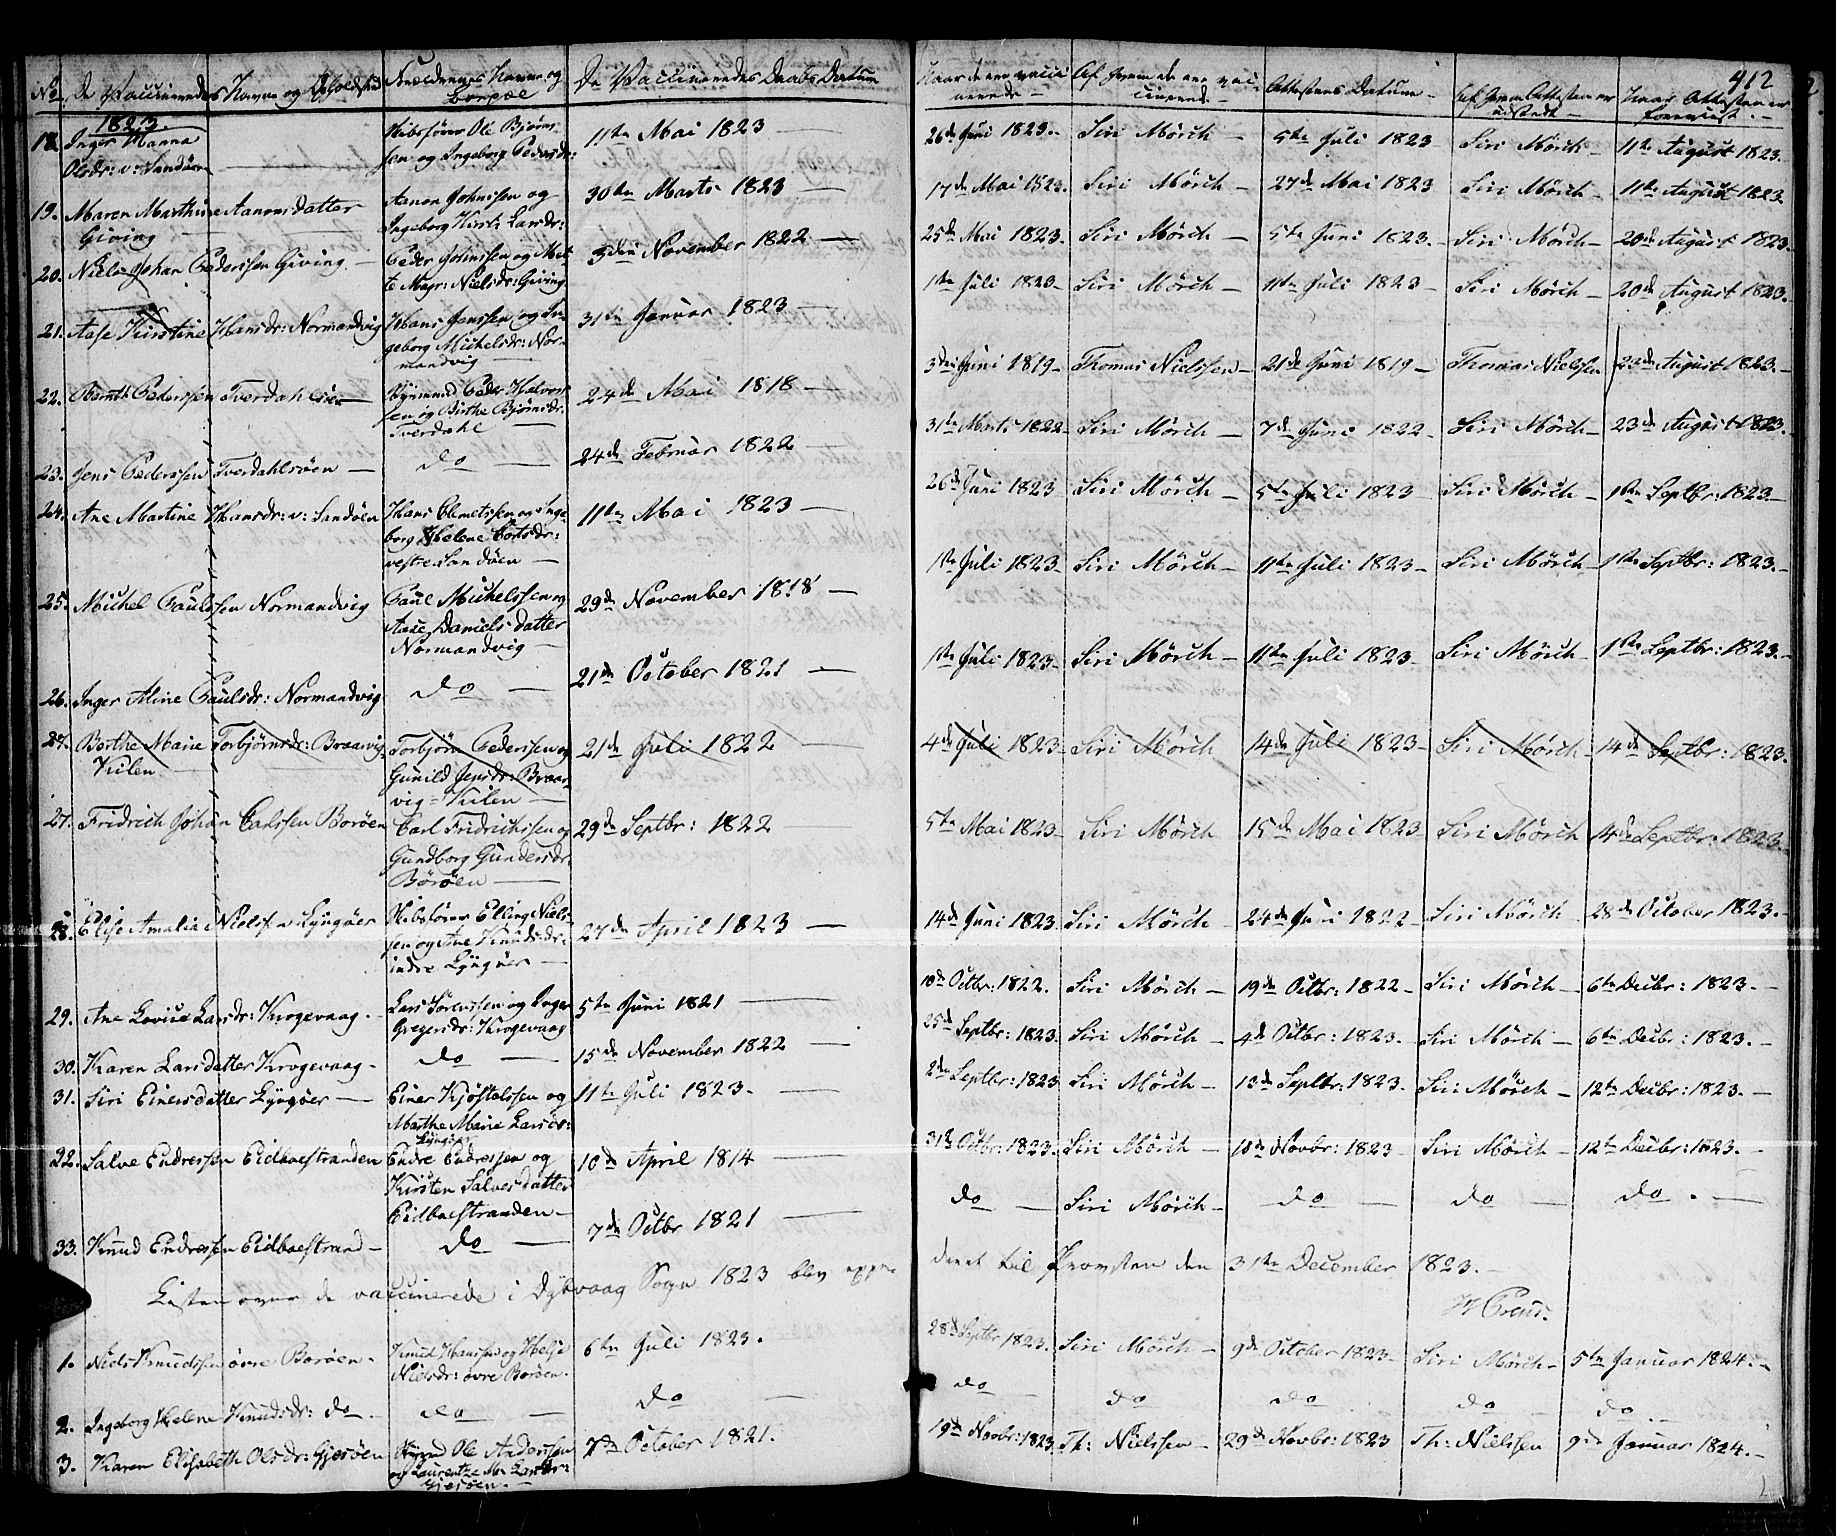 412
No. De Vaccineredes Navne og Opholdsted
Forældrenes Navne og Boepæl
De Vaccineredes Daabs Datum
Naar de ere vaccinerede
Af hvem de ere vaccinerede
Attestens Datum
Af hvem Attesten er udstedt
Naar Attesten er foreviist
1823.
18. Inger Hanna Olsdr: v: Sandøen
Skibsfører Ole Bjørnssen og Ingeborg Pedersdr:
11te Mai 1823
26de Juni 1823. Siri Mörch 5te Juli 1823 Siri Mörch 11te August 1823.
19. Maren Marthine Aanonsdatter Giving
Aanon Johnssen og Ingeborg Kirst: Larsdr:
30te Marts 1823
17de Mai 1823. Siri Mörch 27de Mai 1823 Siri Mörch 11te August 1823.
20. Niels Johan Pederssen Giving
Peder Johnssen og Mette Margr: Nielsdr: Giving
3die November 1822
25de Mai 1823. Siri Mörch 5te Juni 1823. Siri Mörch 20de August 1823.
21. Aase Kirstine Hansdr: Normandvig
Hans Jenssen og Ingeborg Michelsdr: Normandvig
31te Januar 1823
1ste Juli 1823 Siri Mörch 11te Juli 1823 Siri Mörch 20de August 1823.
22. Bernth Pederssen Tverdahlsöen
Peder Halvorssen og Birthe Bjørnsdr. Tverdahl
24de Mai 1818
3die Juni 1819 Thomas Nielssen 21de Juni 1819 Thomas Nielssen 23de August 1823.
23. Jens Pederssen Tverdahlsöen
do
24de Februar 1822
31te Marts 1822 Siri Mörch 7de Juni 1822 Siri Mörch 23de August 1823.
24. Ane Martine Hansdr: v: Sandöen
Hans Clemetssen og Ingeborg Helene Cortsdr: vestre Sandöen
11te Mai 1823
26de Juni 1823 Siri Mörch 5te Juli 1823 Siri Mörch 1ste Septbr: 1823
25. Michel Paulssen Normandvig
Paul Michelssen og Aase Daniels datter Normandvig
29de November 1818
1ste Juli 1823 Siri Mörch 11te Juli 1823 Siri Mörch 1ste Septbr: 1823.
26. Inger Aline Paulsdr: Normandvig
do
21de October 1821
1ste Juli 1823 Siri Mörch 11te Juli 1823 Siri Mörch 1ste Septbr: 1823.
27. Berthe Marie Torbjörnsdr: Braarvig Kilen
Torbjörn Pederssen og Gunild Jensdr: Braarvig=Kilen
21de Juli 1822
4de Juli 1823 Siri Mörch 14de Juli 1823 Siri Mörch 14de Septbr: 1823.
27. Fridrich Johan Carlssen Boröen
Carl Fridrichssen og Gundborg Gundersdr. Boröen
29de Septbr: 1822
5te Mai 1823 Siri Mörch 15de Mai 1823 Siri Mörch 14de Septbr: 1823.
28. Elise Amalia Nielssen Lyngöer
Skibsfører Elling Nielssen og Ane Knudsdr: indre Lyngöer
27de April 1823
14de Juni 1823. Siri Mörch 24de Juni 1822 Siri Mörch 28de October 1823.
29. Ane Lovise Larsdr: Krogevaag.
Lars Sörenssen og Inger Gregersdr: Krogevaag
5te Juni 1821
10de Octbr: 1822. Siri Mörch 19de Octbr: 1822 Siri Mörch 6te Decbr: 1823.
30. Karen Larsdatter Krogevaag
do
15de November 1822
25de Septbr: 1823. Siri Mörch 4de Octbr: 1823. Siri Mörch 6te Decbr: 1823.
31. Siri Einersdatter Lyngöer
Einer Kjöstelssen og Marthe Marie Larsdr: Lyngöer
11te Juli 1823.
2den Septbr: 1823 Siri Mörch 13de Septbr: 1823. Siri Mörch 12te Decbr: 1823.
32. Salve Endressen Eidboestranden
Endre Endressen og Kirsten Salvesdatter Eidboestranden
10de April 1814
31te Octbr: 1823. Siri Mörch 10de Novbr: 1823 Siri Mörch 12te Decbr: 1823.
33. Knud Endressen Eidboestrand
do
7de Octbr 1821
do Siri Mörch do do do.
Listen over de vaccinerede i Dybvaag Sogn 1823 blev oppesendt til Provsten den 31te December 1823.
1. Niels Knudssen övre Boröen.
Knud Hanssen og Helje Nielsdr: övre Boröen.
6te Juli 1823.
28de Septbr 1823. Siri Mörch 9de October 1823 Siri Mörch 5te Januar 1824.
2. Ingeborg Helene Knudsdr: do
do
do
do do do do do
3. Karen Elisabeth Olsdr: Gjeröen
Ole Anderssen og Laurentze M. Larsdr: Gjeröen.
7de October 1821.
19de Novbr: 1823. Th: Nielssen 29de Novbr: 1823 Th: Nielssen 9de Januar 1824.